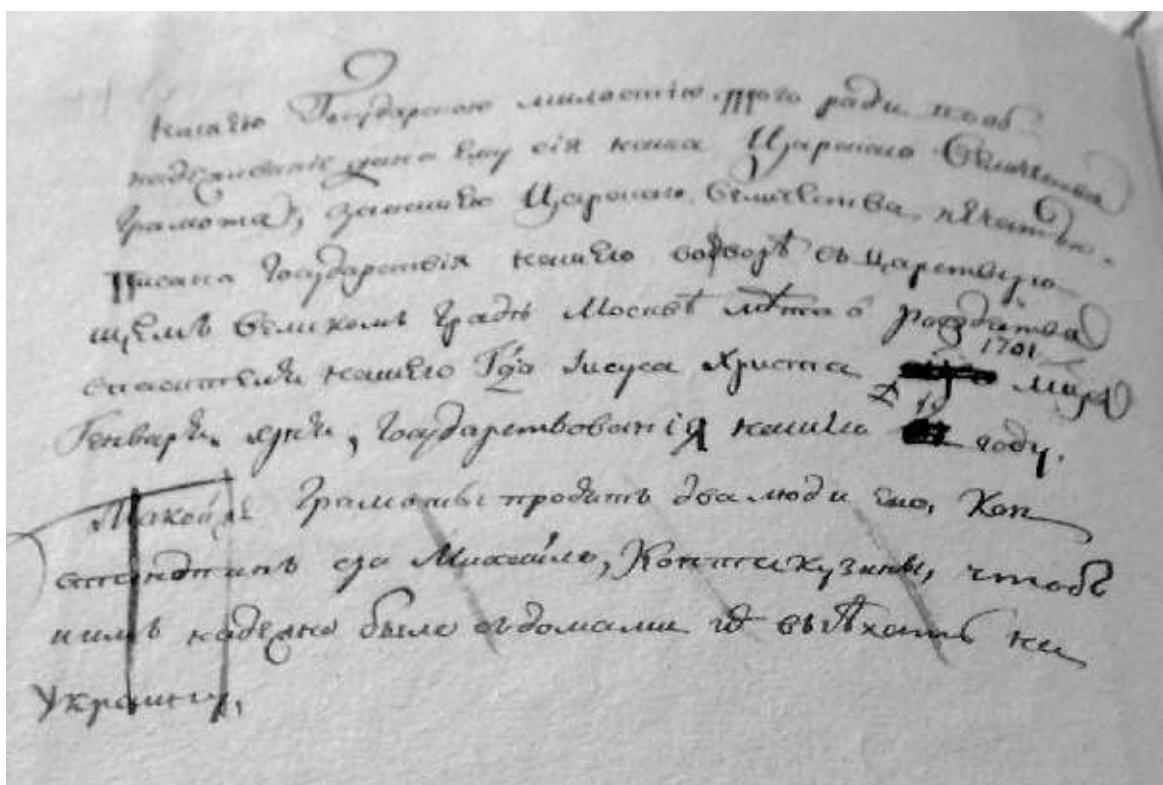 нашею Государскою милостію. Того ради и об
надеживаніе дана ему сія наша Царскаго Величества
грамота, за нашею Царскаго Величества печатью.
Писана Государствія нашего во дворѣ въ царствую
щемъ великомъ градѣ Москвѣ лѣта ѿ рождества
спасителя нашего Гда Іисуса Христа 1701 мцa
Генваря дня, государствованія нашего 19 году.
Такойже грамоты просятъ два люди Кон
стендинъ да Михайло, Контакузины, чтобъ
имъ надежно было з домами выѣхать на
Украину,